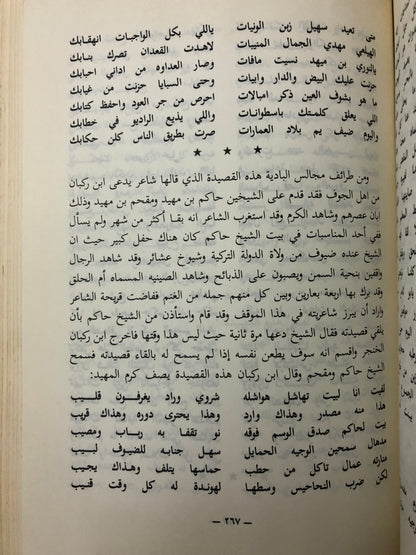 متى تعيد سهيل زبن الونيات    ياللي بكل الواجبات انهقابك
الهيامي مهدي الجمال المنيبات    لاهدت القعدان تصرك بنابك
يالنوري بن مهيد نسيت مافات    وصار العداوه من اداني احبابك
حزنت عليك البيض والدار وابيات    وحتى السبايا حزنت من غيابك
ما هو بشوف العين ذكر امبالات    احرص من جر العود واحفظ كتابك
اللي يعلق كلمتك باسطوانات    واللي يذيع الراديو في خطابك
واليوم ضيف يم بلاد العمارات    صرت بطريق الناس كلن حكابك
★ ★ ★
ومن طرائف مجالس البادية هذه القصيدة الذي قالها شاعر يدعى ابن ركبان
من اهل الجوف فقد قدم على الشيخين حاكم بن مهيد ومقحم بن مهيد وذلك
ابان عصرهم وشاهد الكرم وقد استغرب الشاعر انه بقا أكثر من شهر ولم يسأل
ففي أحد المناسبات في بيت الشيخ حاكم كان هناك حفل كبير حيث ان
الشيخ عنده ضيوف من ولاة الدولة التركية وشيوخ عشائر وقد شاهد الرجال
واقفين بنحية السمن ويصبون على الذبائح وشاهد الصينيه المسماه أم الحلق
وقد برك بها اربعة بعارين وبين كل منهم جمله من الغنم ففاضت قريحة الشاعر
واراد أن يبرز شاعريته في هذا الموقف وقد قام واستأذن من الشيخ حاكم بأن
يلقي قصيدته فقال الشيخ دعها مرة ثانية حيث ليس هذا وقتها فاخرج ابن ركبان
الخنجر واقسم انه سوف يطعن نفسه إذا لم يسمح له بالقاء قصيدته فسمح
الشيخ حاكم ومقحم وقال ابن ركبان هذه القصيدة يصف كرم المهيد:
لفيت انا لبيت تهاشل هواشله    شروي وراد يغرفون قليب
هذا منه مصدر وهذاك وارد    وهذا يحترى دوره وهذاك قريب
بيت لحاكم صدق الوسم فوقه    نو تقفا به رباب ومصيب
مدهال سمحين الوجيه الحمايل    سهل جنابه للضيوف لبيب
منارته عمال تاكل من حطب    حماسها يتلف وهذاك يجيب
لكن ضرب النحاجيس وسطها    لهوندة له كل وقت قنيب
— ٢٦٧ —